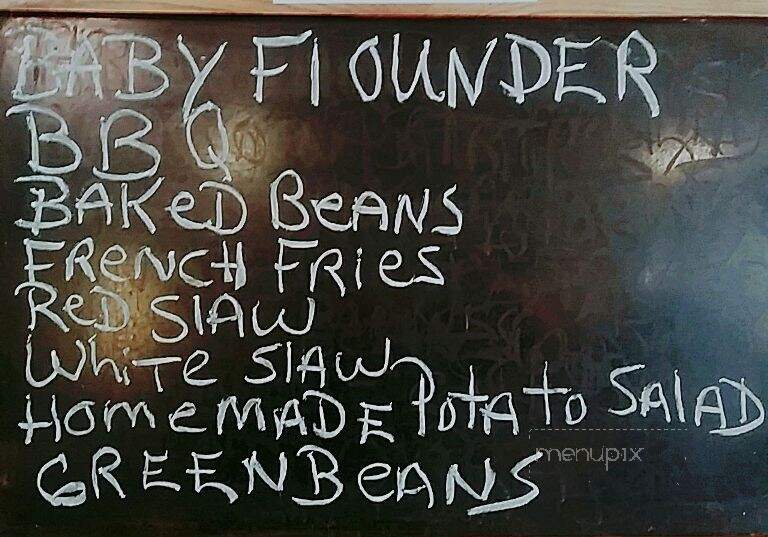 BABY FlOUNDER
BBQ
BAKeD BeANS
FReNCH FRieS
ReD SlAW
WhiTe SlAW
HomeMADE PotAto SAlAD
GREENBeANS
menupix